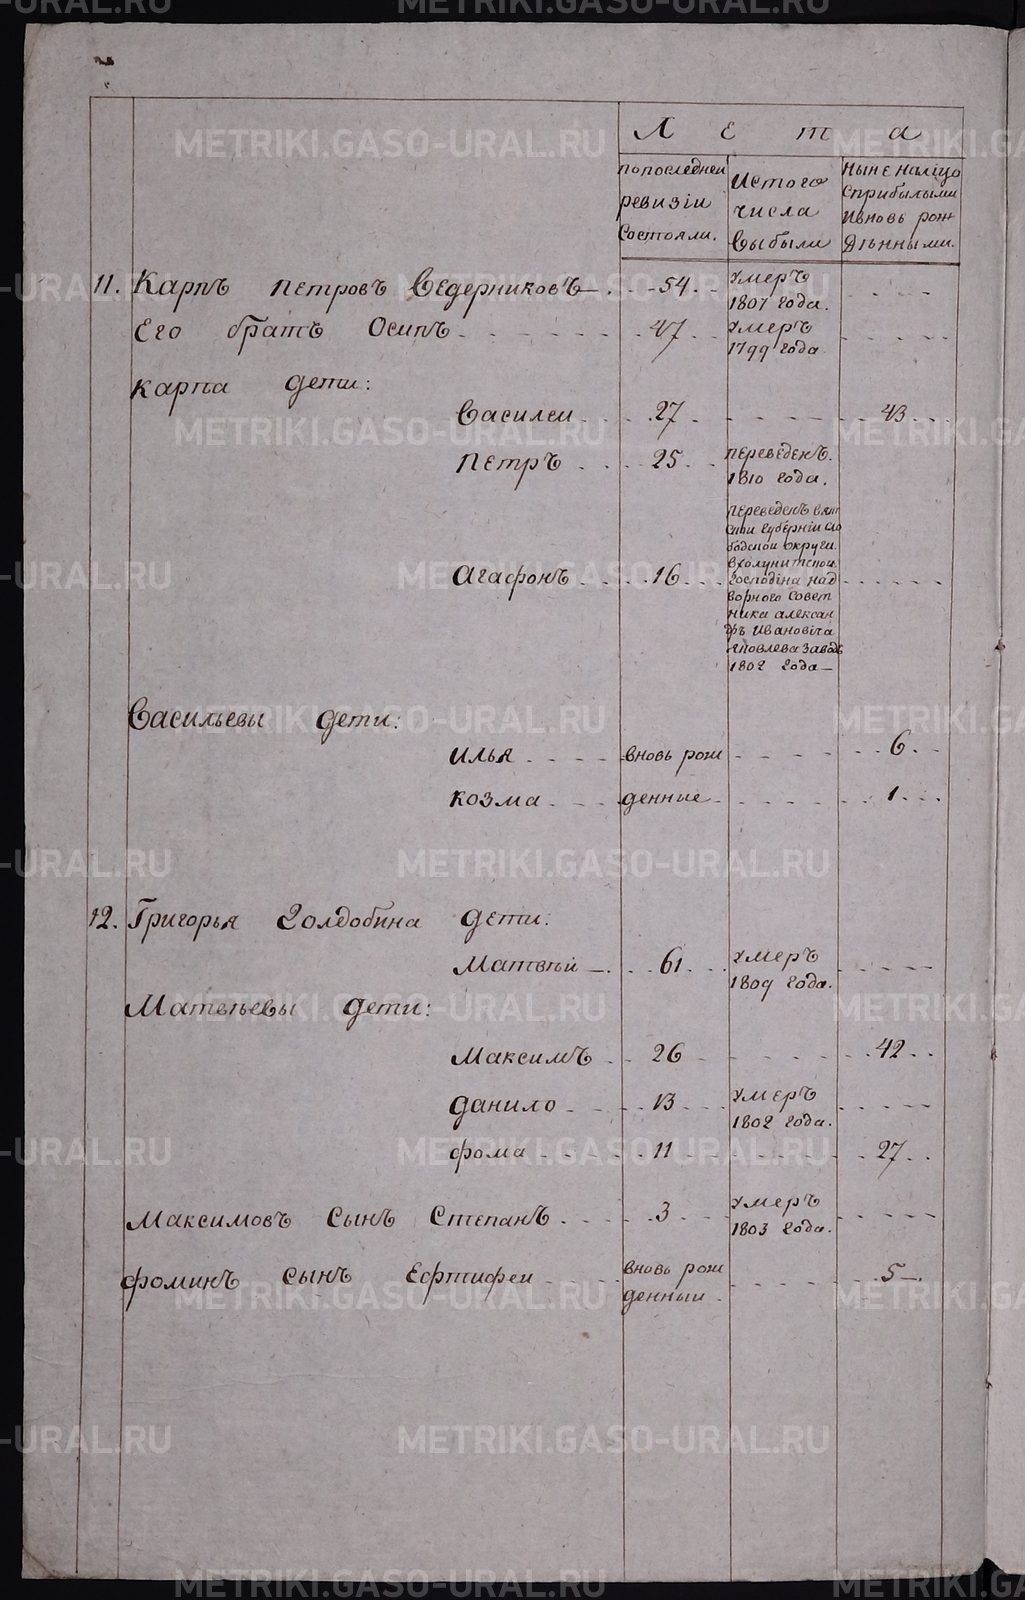 Лета
По последней ревизіи состояли.
Ис того числа выбыли
Ныне налицо с прибылыми и вновь рожденными.
11. Карпъ Петровъ Ведерниковъ 54 умеръ 1807 года.
Его братъ Осипъ 47 умеръ 1799 года
Карпа дети:
Василеи 27 43
Петръ 25 переведенъ. 1810 года.
Агафонъ 16 переведенъ Вятской губерніи Слободской округи в Холунитской господина надворного советника Александръ Ивановича Яковлева заводъ 1802 года
Васильевы дети:
Илья вновь рож 6
Козма денные 1
12. Григорья Голдобина дети:
Матвѣй 61 умеръ 1809 года.
Матвѣевы дети:
Максимъ 26 42
Данило 13 умеръ 1802 года.
Фома 11 27
Максимовъ сынъ Степанъ 3 умеръ 1803 года.
Фоминъ сынъ Ефтифеи вновь рожденныи 5
METRIKI.GASO-URAL.RU